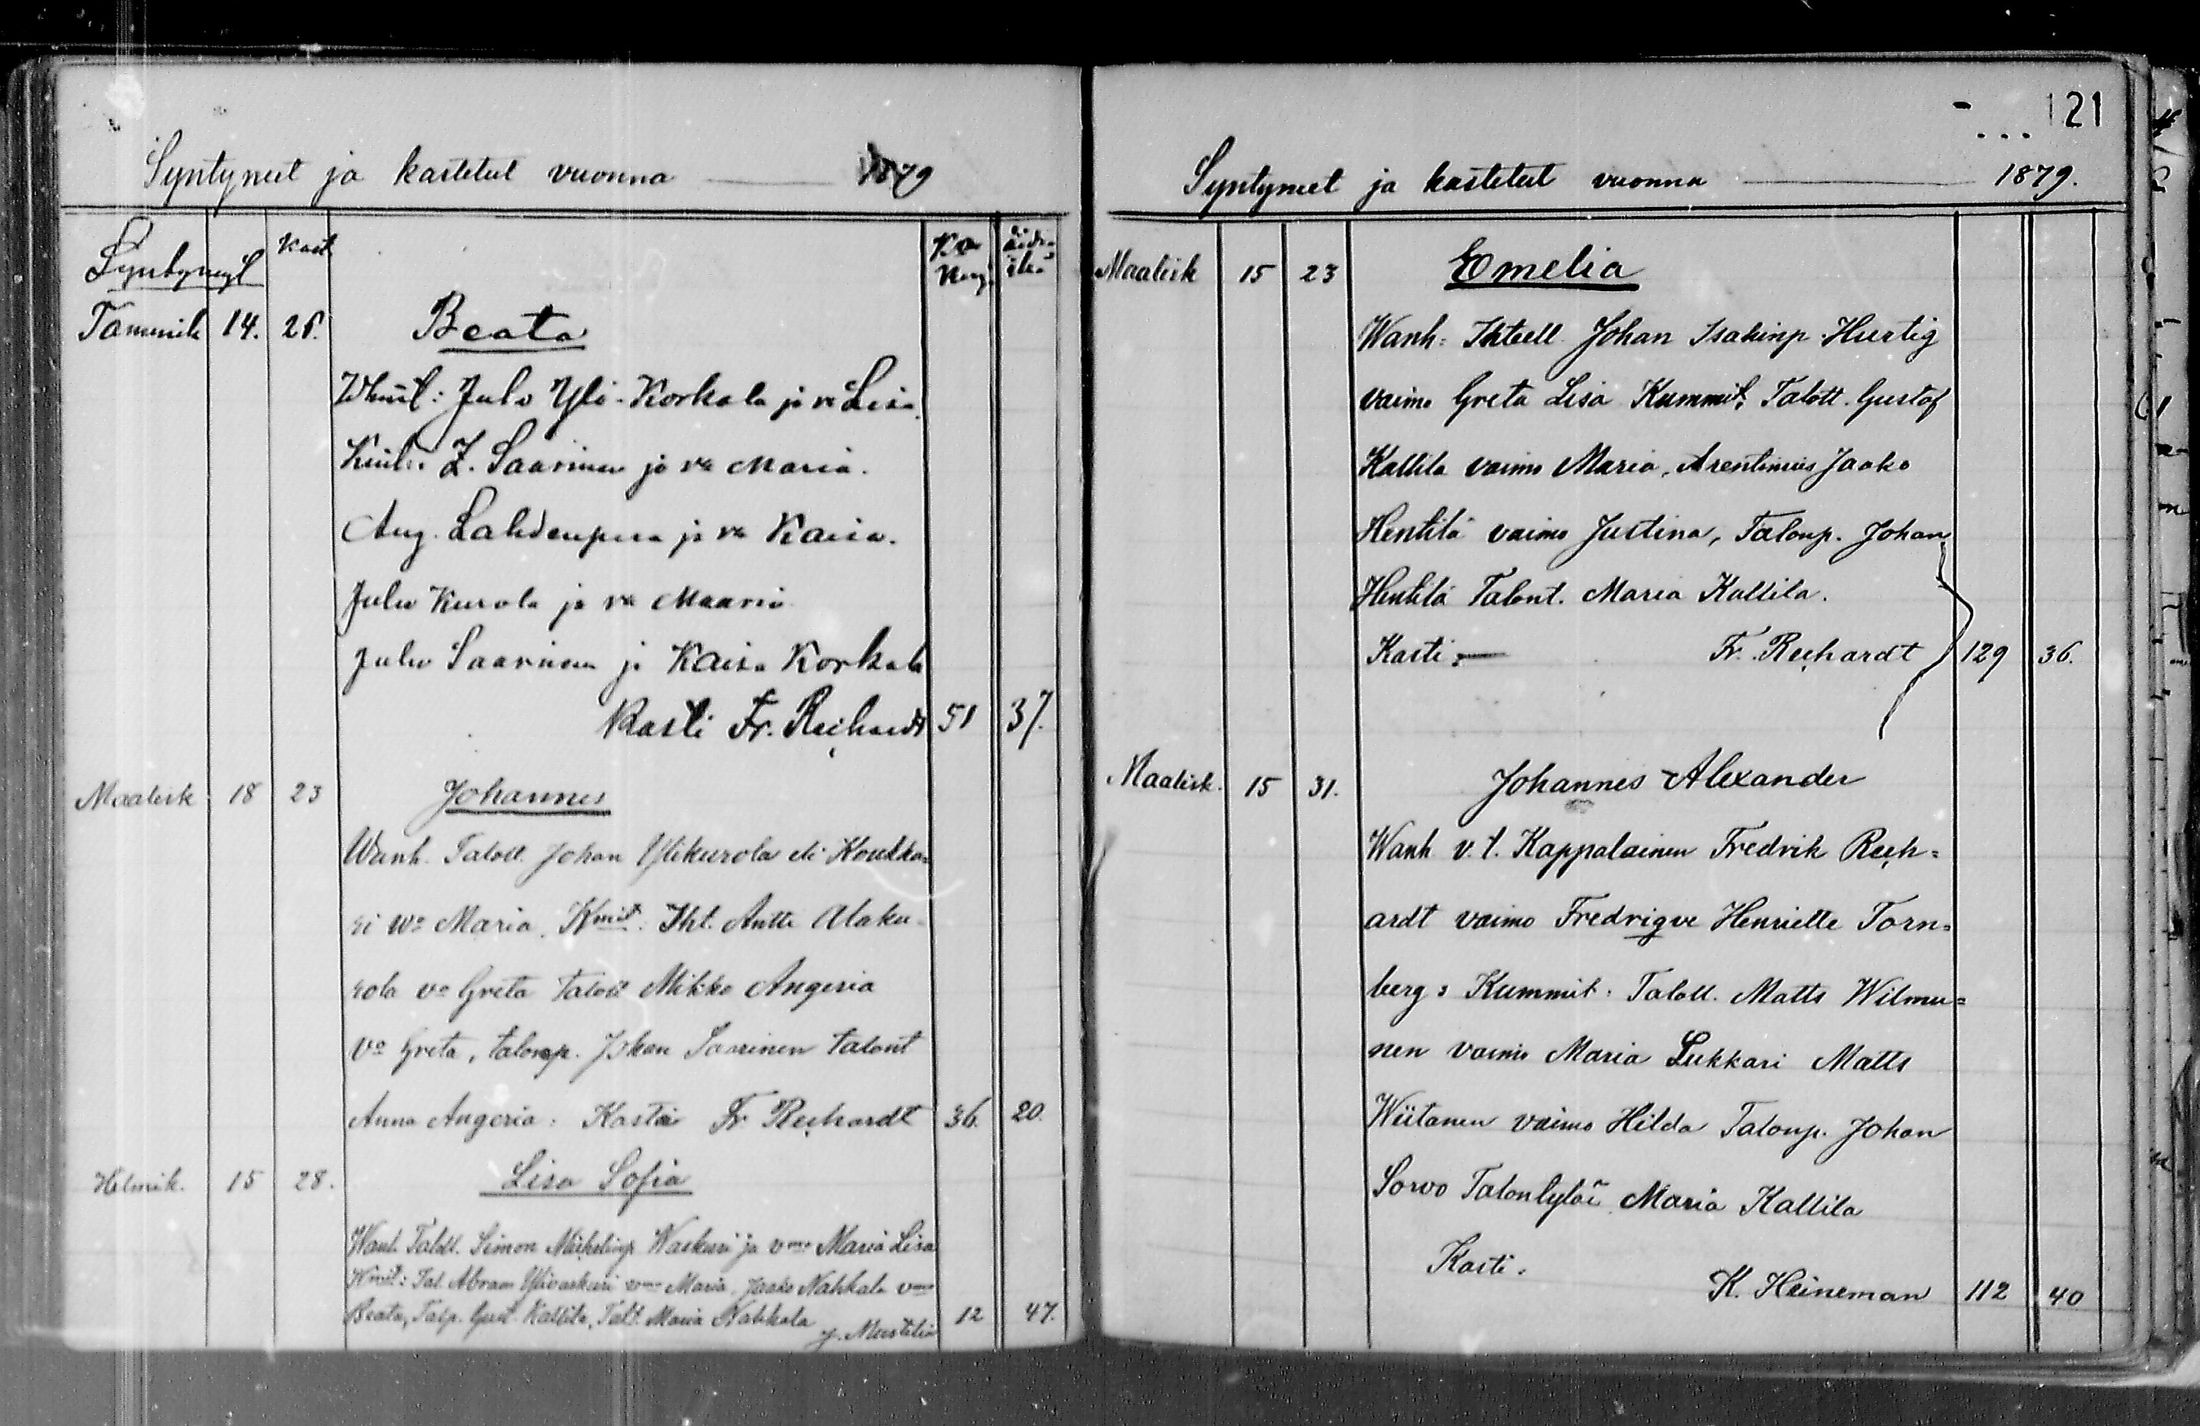 Syntyneet ja kastetut vuonna 1879
Syntyneyt Kast
Tammik 14. 25. Beata
Juho Yli-Korkala ja va Lisa
Z. Saarinen ja va Maria.
Aug. Lahdenpera ja va Kaisa.
Juho Kurola ja va Maaria
Juho Saarinen ja Kaisa Korkala
Kasti Fr. Reçhardt 51 37.
Maalisk 18 23 Johannes
Wanh. Taloll. Johan Ylikurola eli Koukka=
ri wo Maria. Kmit: Iht. Antti Alaku=
rola vo Greta taloll Mikko Angeria
vo Greta, talonp. Johan Saarinen talont
Anna Angeria: Kastoi Fr Reçhardt 36. 20.
Helmik. 15 28. Lisa Sofia
Wanh. Taloll. Simon Mickelinp Waskuri ja vmo Maria Lisa
Kmit: Tal. Abram Ylivaskuri vmo Maria, Jaako Nahkala vmo
Beata, Talp. Gust. Kallila, Talt. Maria Nahkala 12 47.
121
Syntyneet ja kastetut vuonna 1879.
Maalisk 15 23 Emelia
Wanh: Ihtell. Johan Isakinp. Hurtig
vaimo Greta Lisa Kummit; Taloll. Gustaf
Kallila vaimo Maria, Arentimies Jaako
Hentilä vaimo Justina, Talonp. Johan
Hentilä Talont. Maria Kallila.
Kasti: Fr. Reçhardt 129 36.
Maalisk. 15 31. Johannes Alexander
Wanh v. t. Kappalainen Fredrik Reçh=
ardt vaimo Fredrique Henriette Torn=
berg: Kummit: Taloll. Matts Wilmu=
nen vaimo Maria Lukkari Matts
Wiitanen vaimo Hilda Talonp. Johan
Sorvo Talontytär Maria Kallila
Kasti.
K. Heineman 112 40